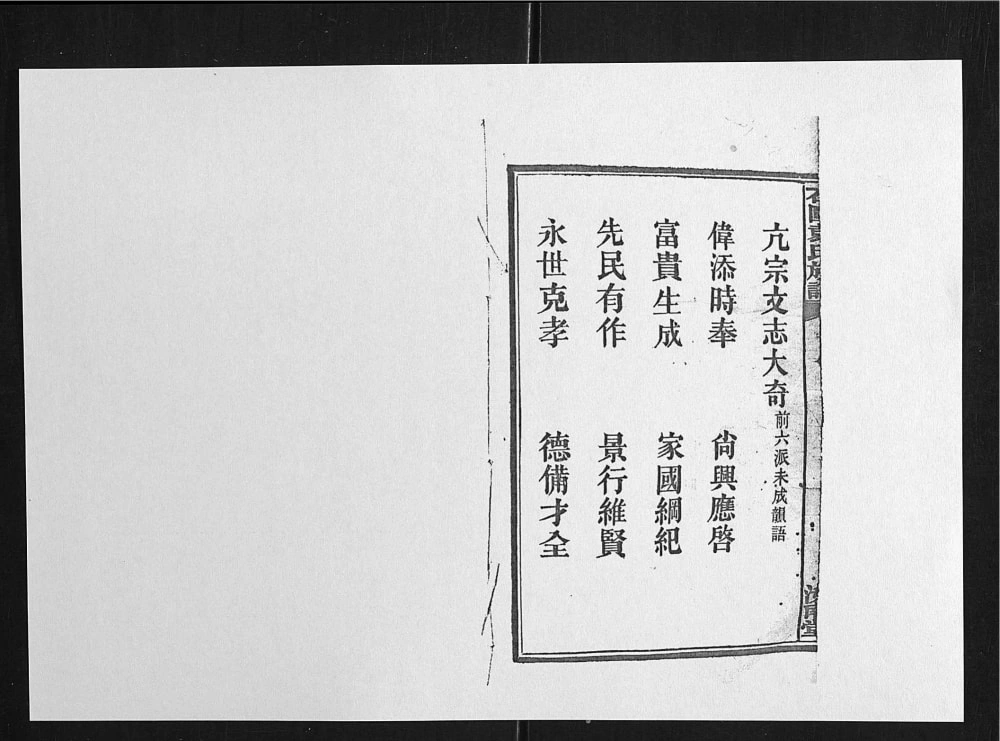 亢宗文志大奇前六派未成韻語
偉添時奉 尙興應啓
富貴生成 家國綱紀
先民有作 景行維賢
永世克孝 德備才全
氏族譜
堂